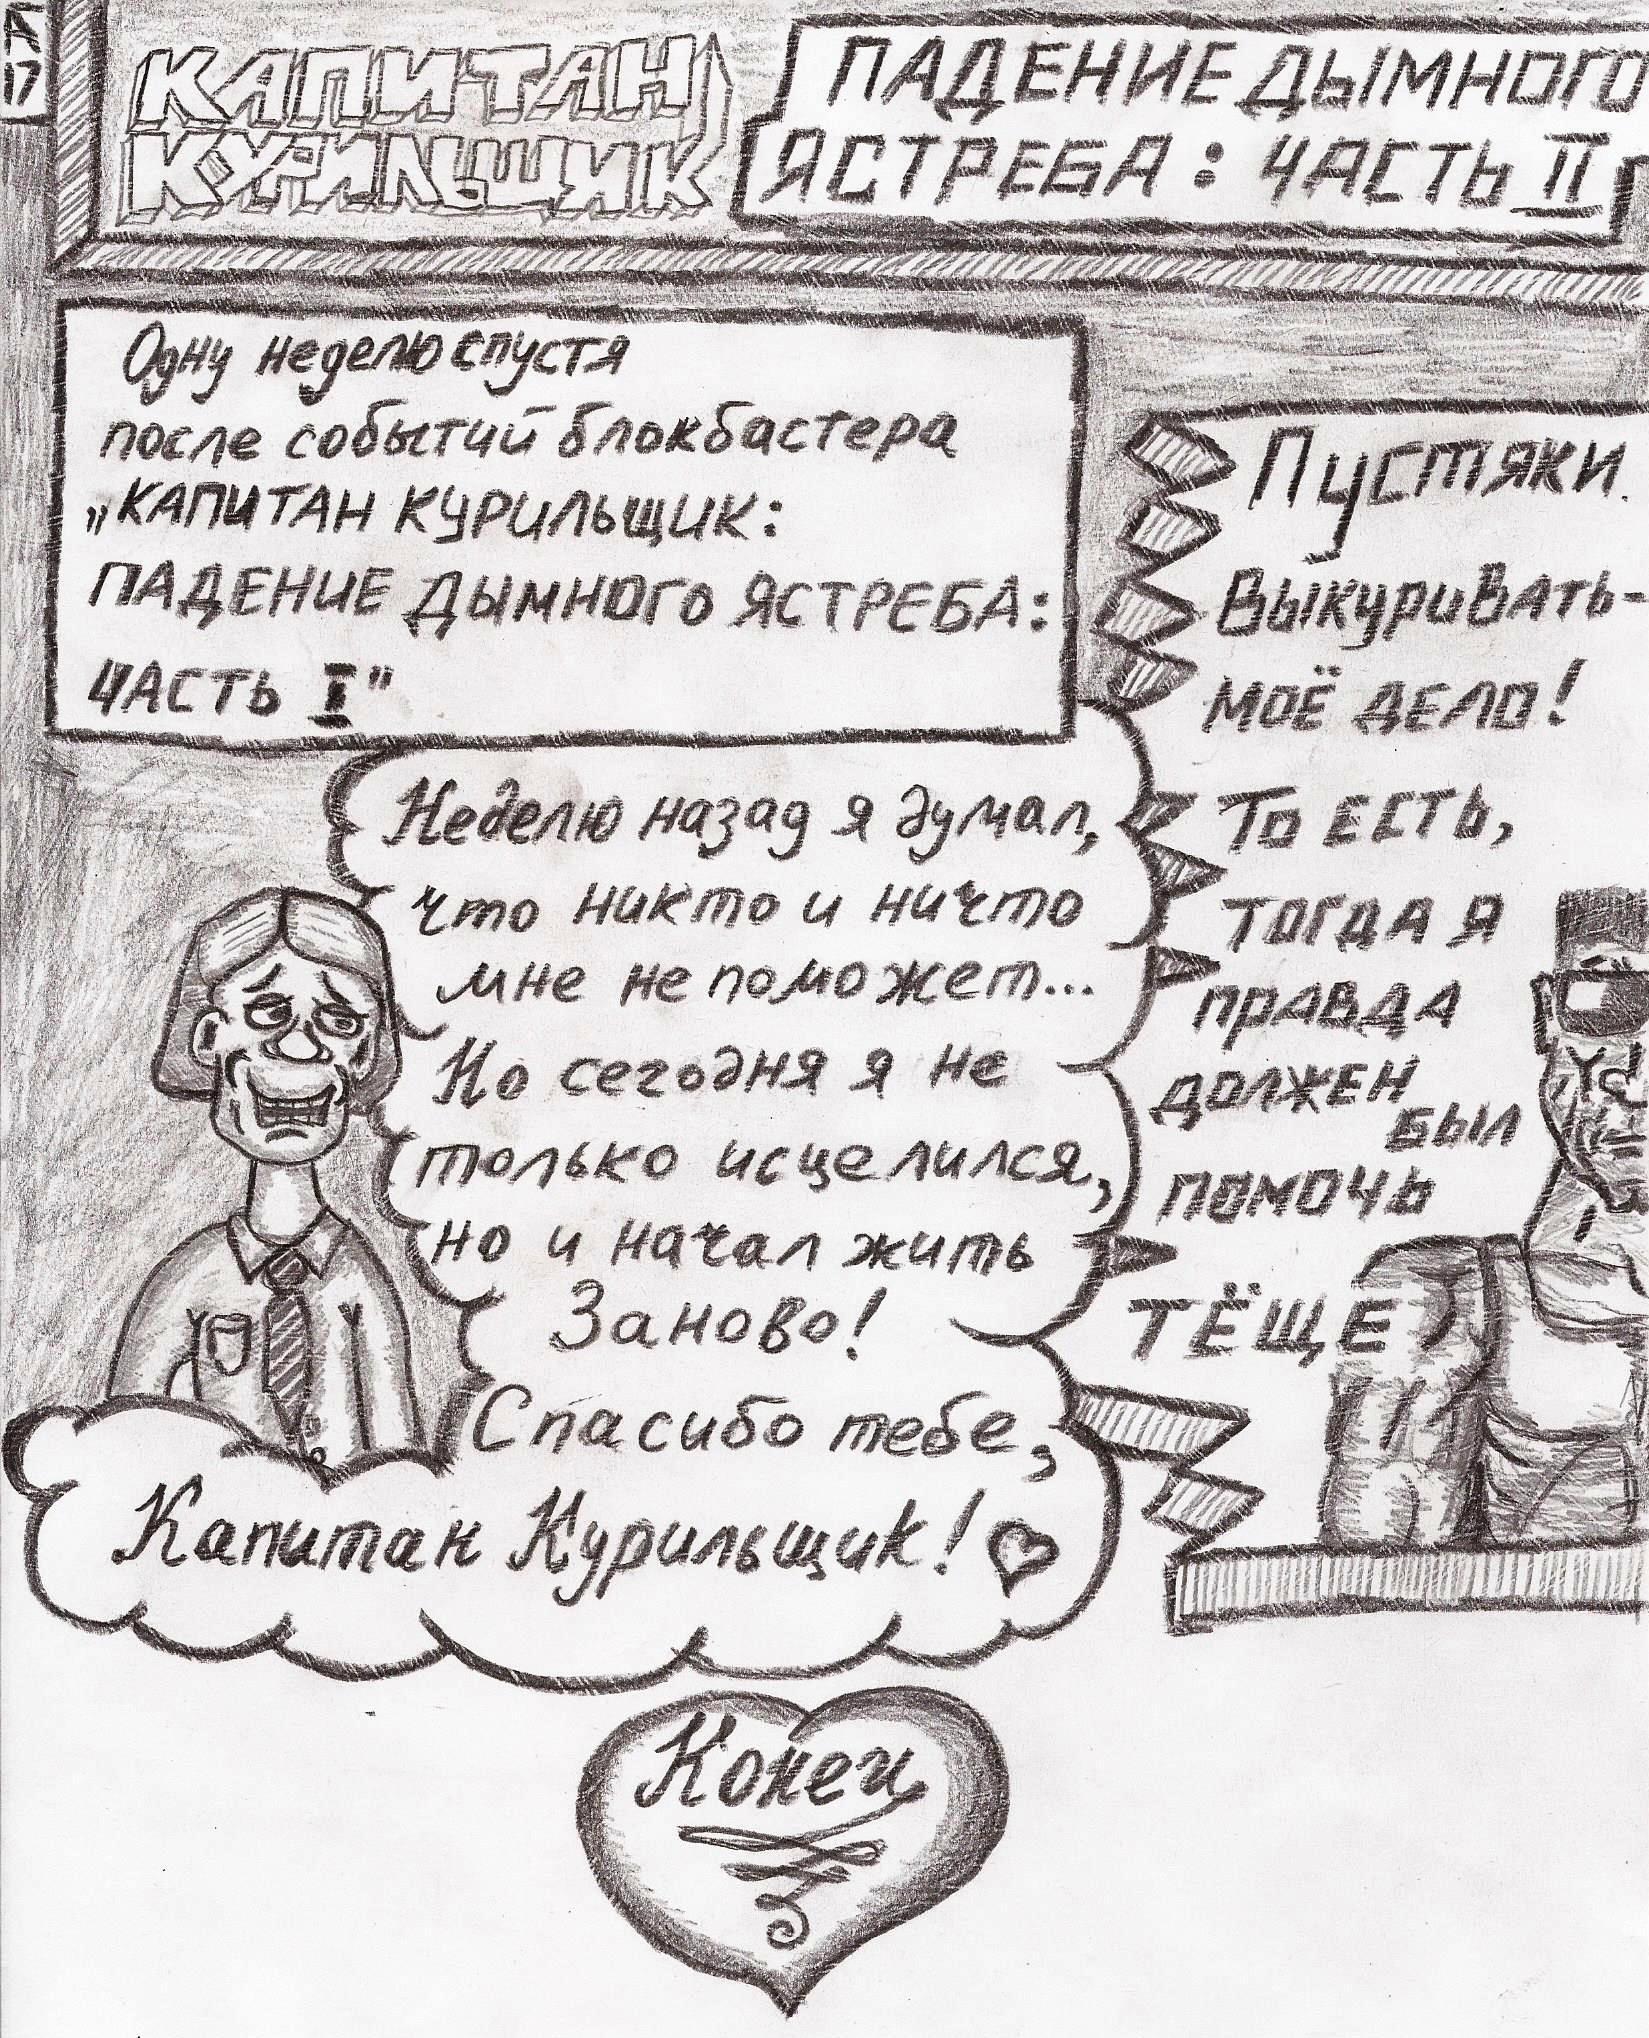 17
КАПИТАН
КУРИЛЬЩИК
ПАДЕНИЕ ДЫМНОГО
ЯСТРЕБА: ЧАСТЬ II
Одну неделю спустя
после событий блокбастера
„КАПИТАН КУРИЛЬЩИК:
ПАДЕНИЕ ДЫМНОГО ЯСТРЕБА:
ЧАСТЬ I"
Неделю назад я думал,
что никто и ничто
мне не поможет...
Но сегодня я не
только исцелился,
но и начал жить
Заново!
Спасибо тебе,
Капитан Курильщик!
Пустяки.
Выкуривать-
МОЁ ДЕЛО!
ТО ЕСТЬ,
ТОГДА Я
ПРАВДА
ДОЛЖЕН
БЫЛ
ПОМОЧЬ
ТЁЩЕ
Конец